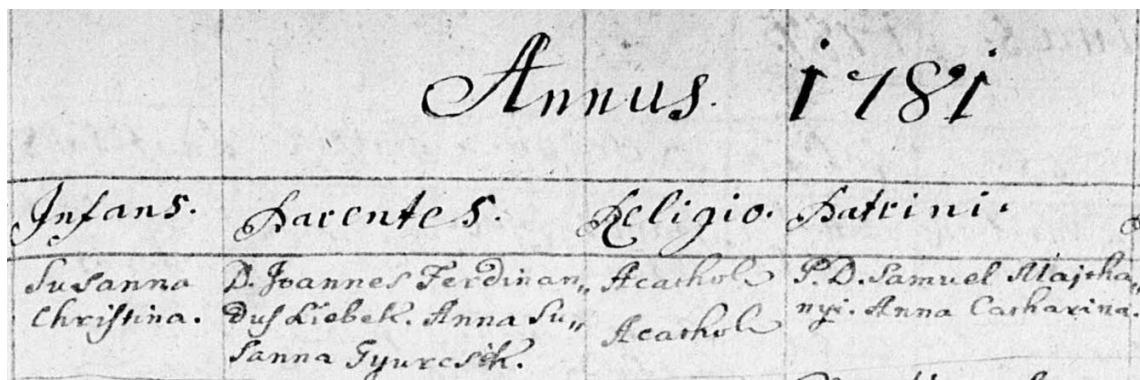 Annus. 1781
Infans. Parentes. Religio. Patrini.
Susanna
Christina.
D. Joannes Ferdinan„
dus Liebek. Anna Su„
sanna Gyurcsik.
Acathol
Acathol
P. D. Samuel Majtha„
nyi. Anna Catharina.